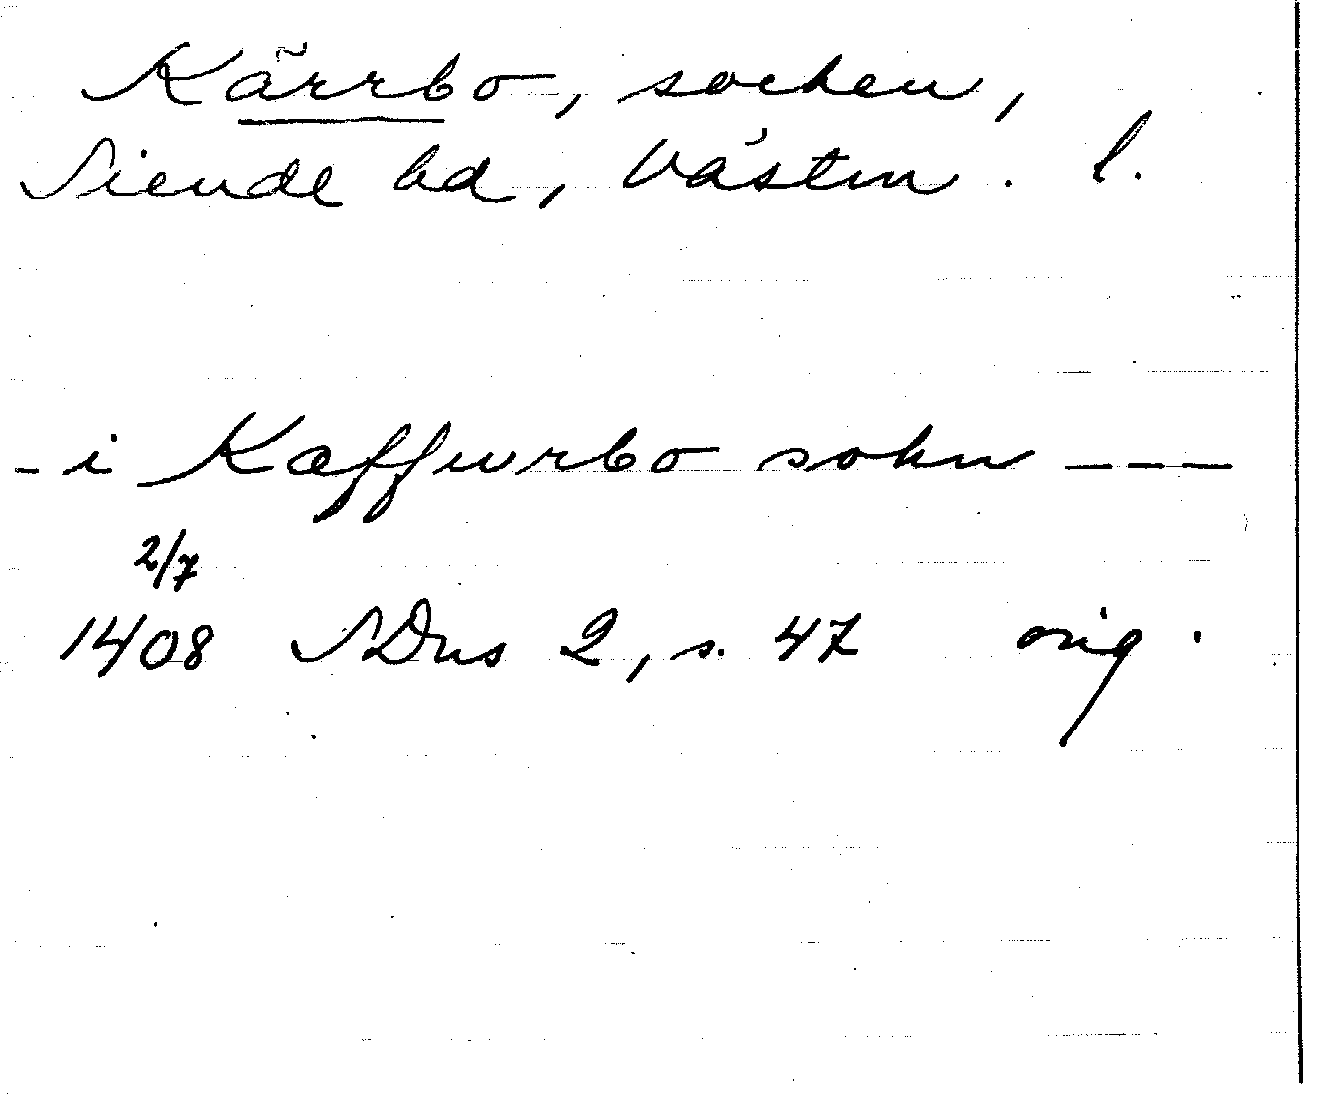 Kärrbo, socken,
Siende hd, Västm. l.
- i Kæffwrbo sokn ---
2/7
1408 SDns 2, s. 47 orig.